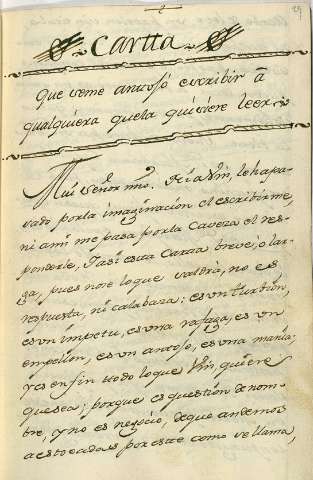 29
Cartta
Que seme antosó escribir â
qualquiera quela quisiere leer.
Mui señor mio. Nia Vm, leha pa-
sado por la imaginacion el escribirme,
ni ami me pasa por la Caveza el res-
ponderle, Yasi esta Carta breve, o lar-
ga, pues nose loque valdra, no es
respuesta, ni calabaza; es un turbion,
es un impetu, es una rafaga, es un
empellon, es un antoso, es una mania;
yes en fin todo loque Vm, quiere
quesea; porque es question de nom-
bre, y no es negocio, deque andemos
a estocadas por este como se llama,